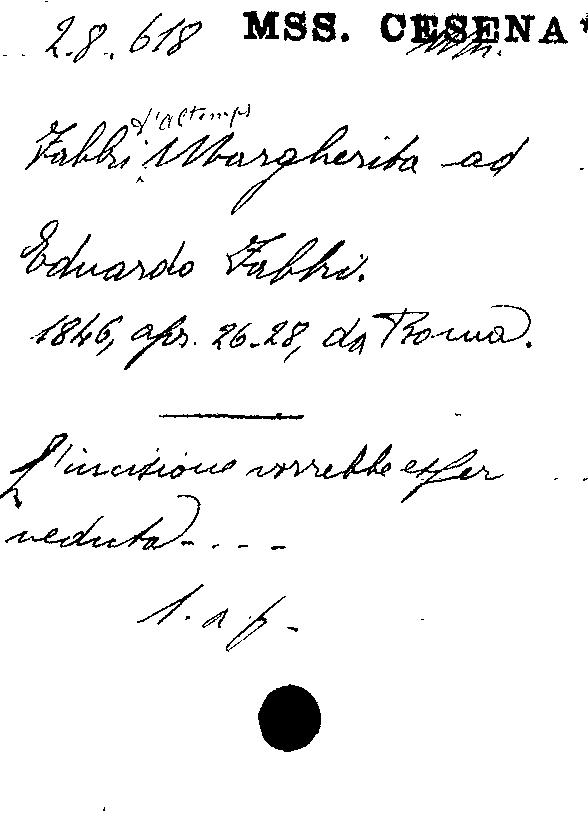 2.8.618 MSS. CESENA
d'Altemps
Fabbri Margherita ad
Eduardo Fabbri.
1846, apr. 26-28, da Roma.
L'incisione vorrebbe esser
veduta - . . -
l. a f.